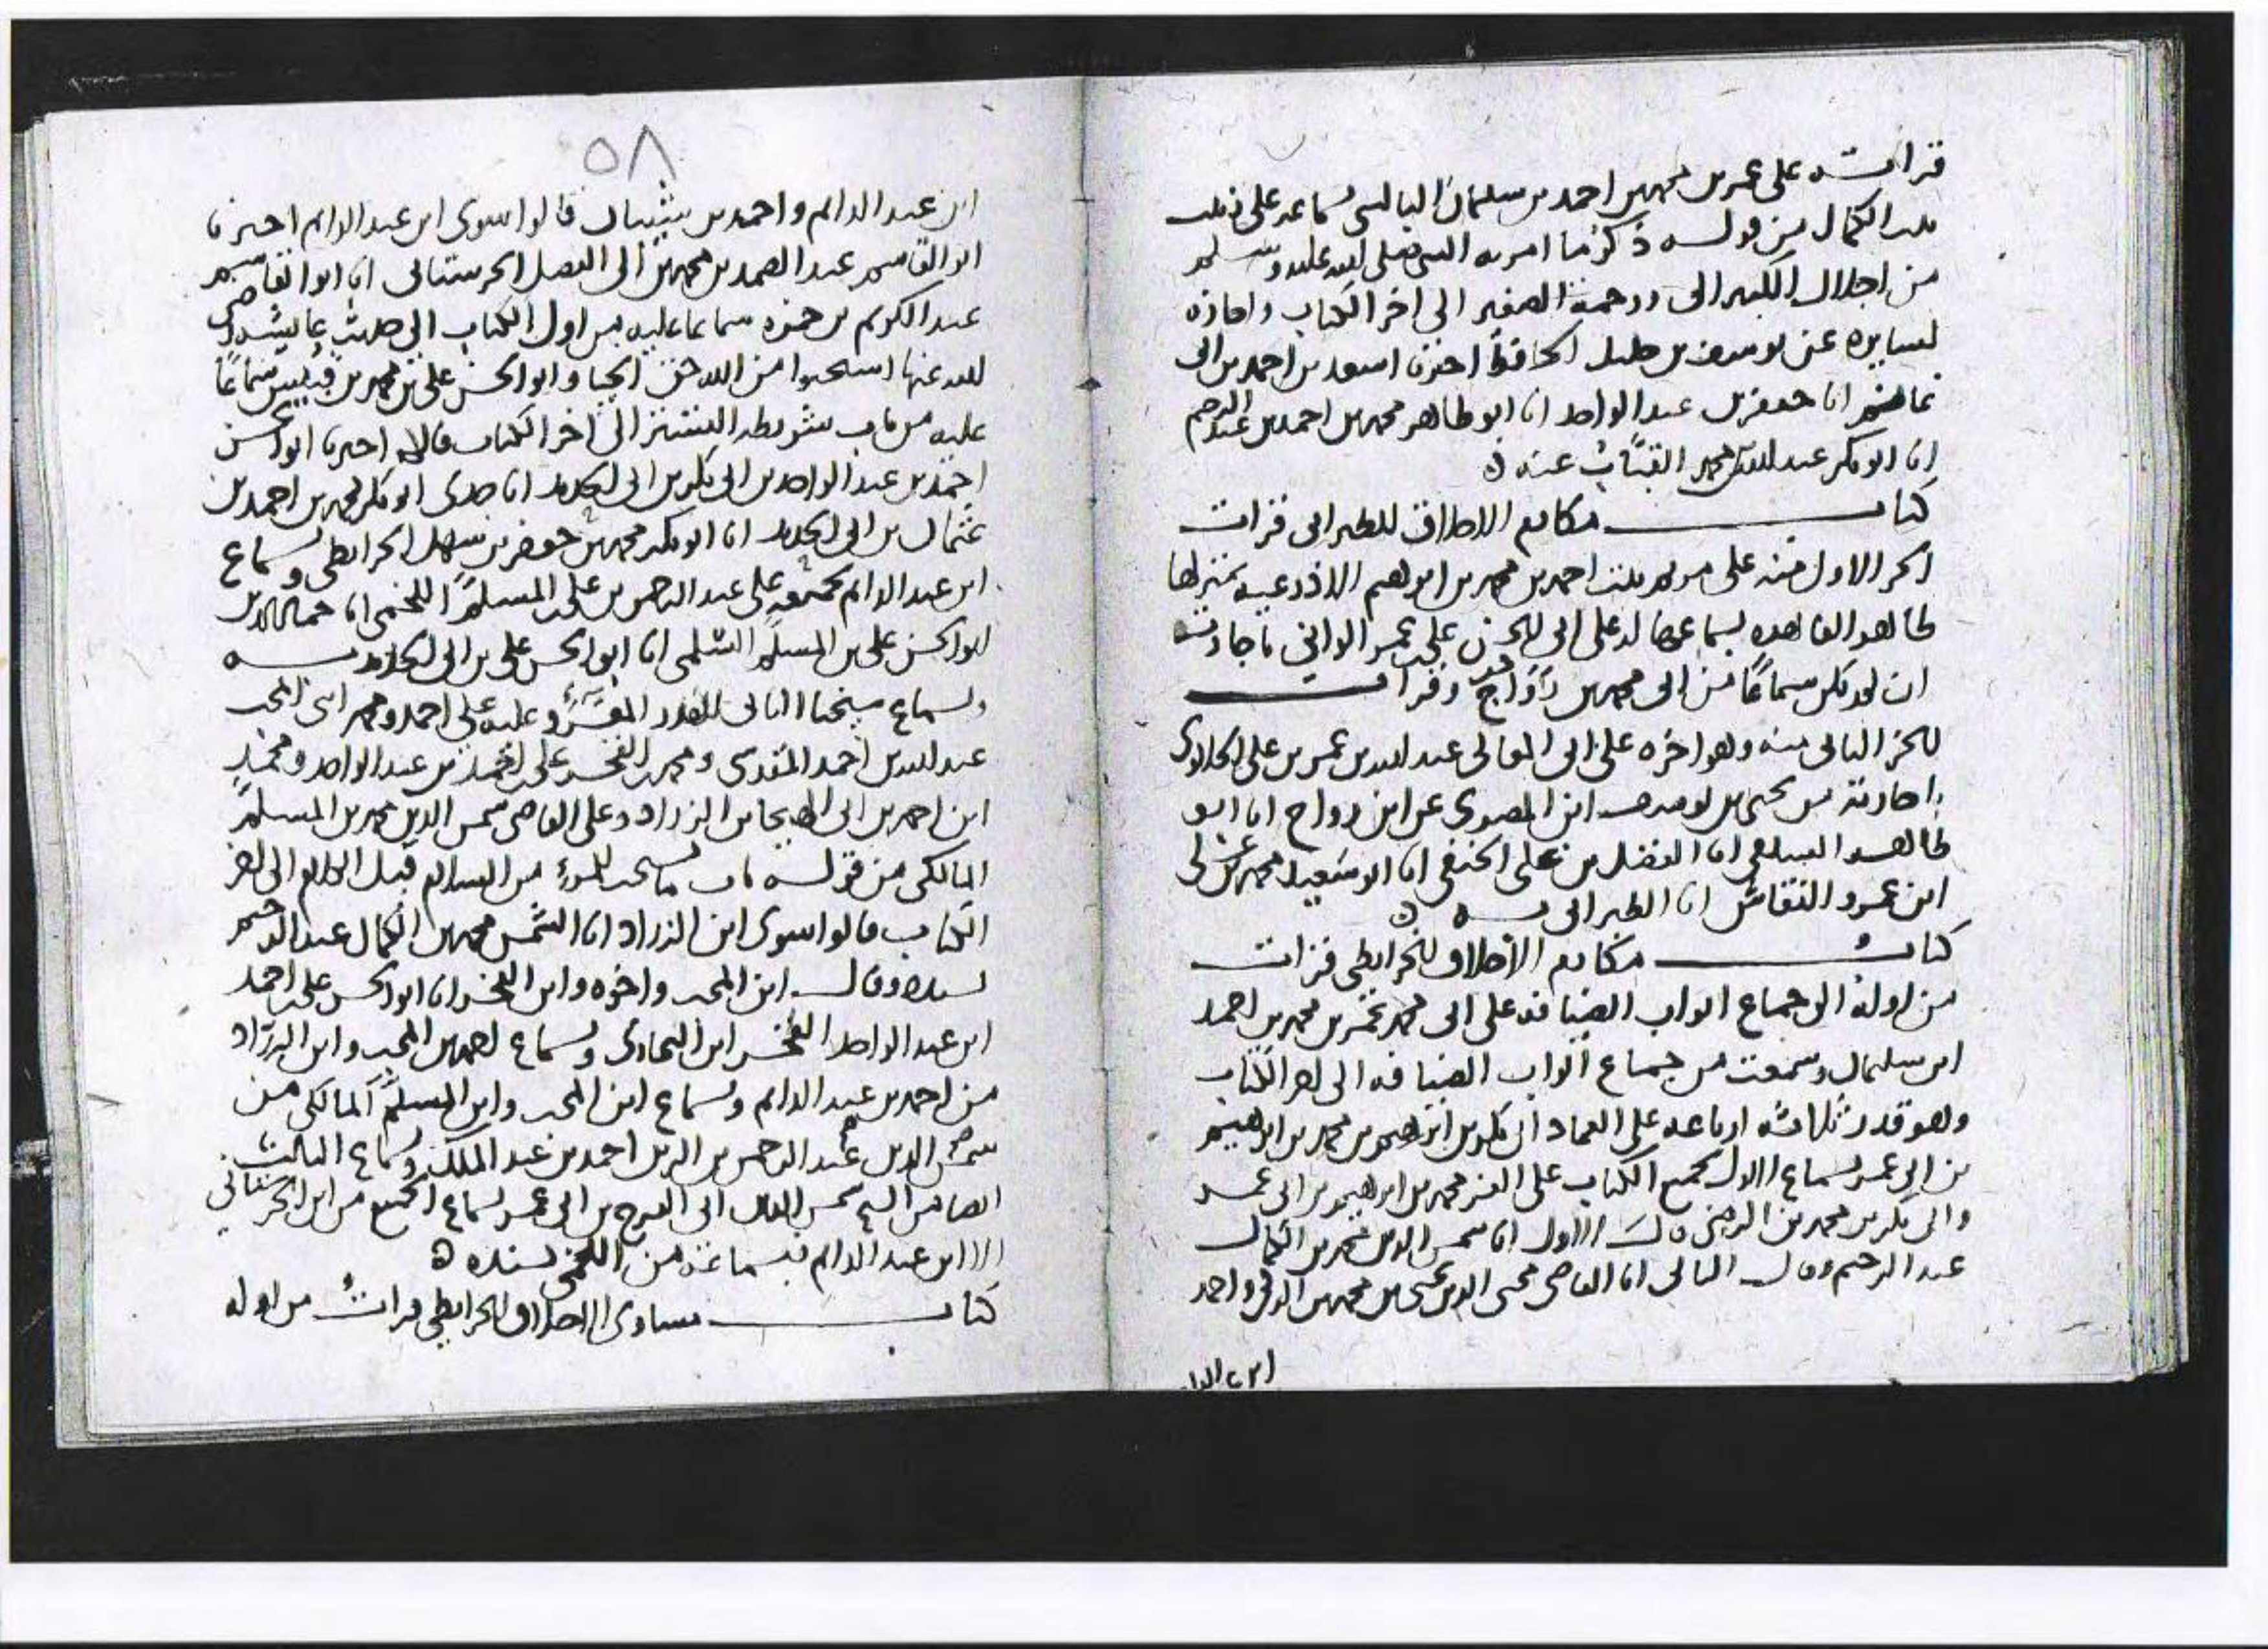 قرأته على عمر بن محمد بن احمد بن سلمان البالسي بسماعه على زينب
بنت الكمال من قوله ذكر ما امر به النبي صلى الله عليه وسلم
من اجلال الكبير الى ورحمة الصغير الى اخر الكتاب واجازه
لسايره عن يوسف بن خليل الحافظ اخبرنا اسعد بن احمد بن ابي
غانم انا جعفر بن عبد الواحد انا ابو طاهر محمد بن احمد بن عبد الرحيم
انا ابو بكر عبد الله بن محمد القباب عنه
كتاب مكارم الاخلاق للطبراني قرات
الجز الاول منه على مريم بنت احمد بن محمد بن ابراهيم الاذرعية بمنزلها
ظاهر القاهره بسماعها له على ابي الحسن علي بن عمر الواني باجازته
ان لم يكن سماعا من ابي محمد بن رواج وقرات
الجز الثاني منه وهو اخره على ابي المعالي عبد الله بن عمر بن علي الحلاوي
باجازته من يحيى بن يوسف ابن المصري عن ابن رواج انا ابو
طاهر السلفي انا الفضل بن علي الحنفي انا ابو سعيد محمد بن علي
ابن عمرو النقاش انا الطبراني به
كتاب مكارم الاخلاق للخرايطي قرات
من اوله الى جماع ابواب الضيافه على ابي محمد عمر بن محمد بن احمد
ابن سلمان وسمعت من جماع ابواب الضيافه الى اخر الكتاب
وهو قدر ثلاثة ارباعه على العماد ابي بكر بن ابراهيم بن محمد بن ابراهيم
بن ابي عمر بسماع الاول لجميع الكتاب على العز محمد بن ابراهيم بن ابي عمر
وابي بكر بن محمد بن الرضي قال الاول انا شمس الدين محمد بن الكمال
عبد الرحيم وقال الثاني انا القاضي محيي الدين يحيى بن محمد بن الزكي واحمد
ابن عبد الدا
٥٨
ابن عبد الدايم واحمد بن شيبان قالوا سوى ابن عبد الدايم اخبرنا
ابو القاسم عبد الصمد بن محمد بن ابي الفضل الحرستاني انا ابو القاسم
عبد الكريم بن حمزه سماعا عليه من اول الكتاب الى حديث عايشه رضي
الله عنها استحيوا من الله حق الحيا وابو الحسن علي بن محمد بن قبيس سماعا
عليه من باب الى اخر الكتاب قالا اخبرنا ابو الحسن
احمد بن عبد الواحد بن ابي بكر بن ابي الحديد انا جدي ابو بكر محمد بن احمد بن
عثمان بن ابي الحديد انا ابو بكر محمد بن جعفر بن سهل الخرايطي وبسماع
ابن عبد الدايم لجميعه على عبد الرحمن بن علي بن المسلم اللخمي انا جمال الدين
ابو الحسن علي بن المسلم السلمي انا ابو الحسن علي بن ابي الحديد به
وبسماع شيخنا الثاني للقدر المقروء عليه على احمد ومحمد ابني المحب
عبد الله بن احمد المقدسي ومحمد بن الفخر علي بن احمد بن عبد الواحد ومحمد
ابن احمد بن ابي الهيجا بن الزراد وعلى القاضي شمس الدين محمد بن المسلم
المالكي من قوله باب ما يستحب للمرء من السلام قبل الكلام الى اخر
الكتاب قالوا سوى ابن الزراد انا الشمس محمد بن الكمال عبد الرحيم
بسنده وقال ابن المحب واخوه وابن الفخر انا ابو الحسن علي بن احمد
ابن عبد الواحد الفخر ابن البخاري وبسماع احمد بن المحب وابن الزراد
من احمد بن عبد الدايم وبسماع ابن المحب وابن المسلم المالكي من
شمس الدين عبد الرحمن بن الزين احمد بن عبد الملك وبسماع الثالث
ايضا من الشيخ شمس الدين ابي الفرج بن ابي عمر بسماع الجميع من ابن الحرستاني
الا ابن عبد الدايم فبسماعه من اللخمي بسنده
كتاب مساوي الاخلاق للخرايطي قرات من اوله